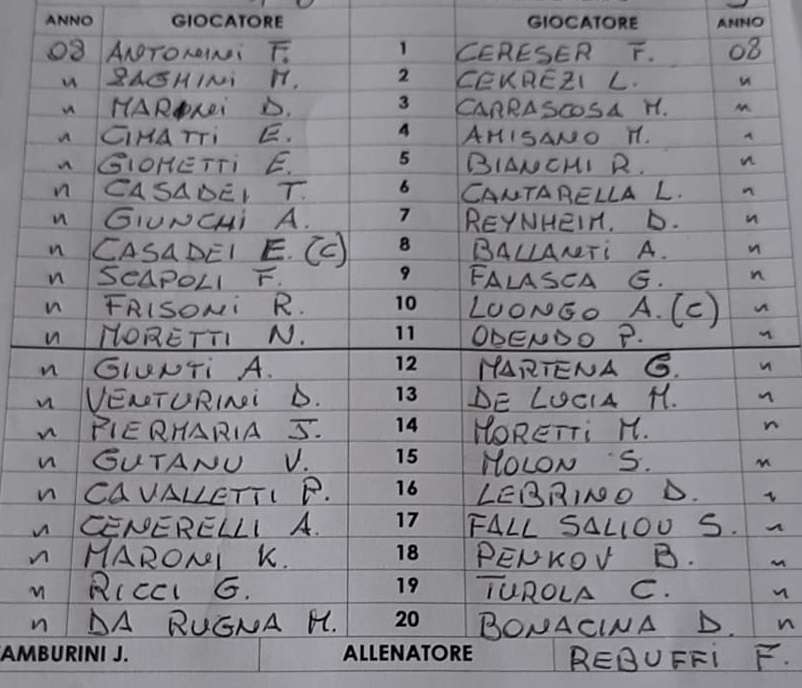 ANNO GIOCATORE GIOCATORE ANNO
08 ANTONINI F. 1 CERESER F. 08
" ZAGHINI M. 2 CEKREZI L. "
" MARONEI D. 3 CARRASCOSA M. "
" CIMATTI E. 4 AMISANO M. "
" GIOMETTI E. 5 BIANCHI R. "
" CASADEI T. 6 CANTARELLA L. "
" GIUNCHI A. 7 REYNHEIM. D. "
" CASADEI E. (C) 8 BALLANTI A. "
" SCAPOLI F. 9 FALASCA G. "
" FRISONI R. 10 LUONGO A. (C) "
" MORETTI N. 11 ODENDO P. "
" GIUNTI A. 12 MARTENA G. "
" VENTURINI D. 13 DE LUCIA M. "
" PIERMARIA J. 14 MORETTI M. "
" GUTANU V. 15 MOLON S. "
" CAVALLETTI P. 16 LEBRINO D. "
" CENERELLI A. 17 FALL SALIOU S. "
" MARONI K. 18 PENKOV B. "
" RICCI G. 19 TUROLA C. "
" DA RUGNA M. 20 BONACINA D. "
AMBURINI J. ALLENATORE REBUFFI F.